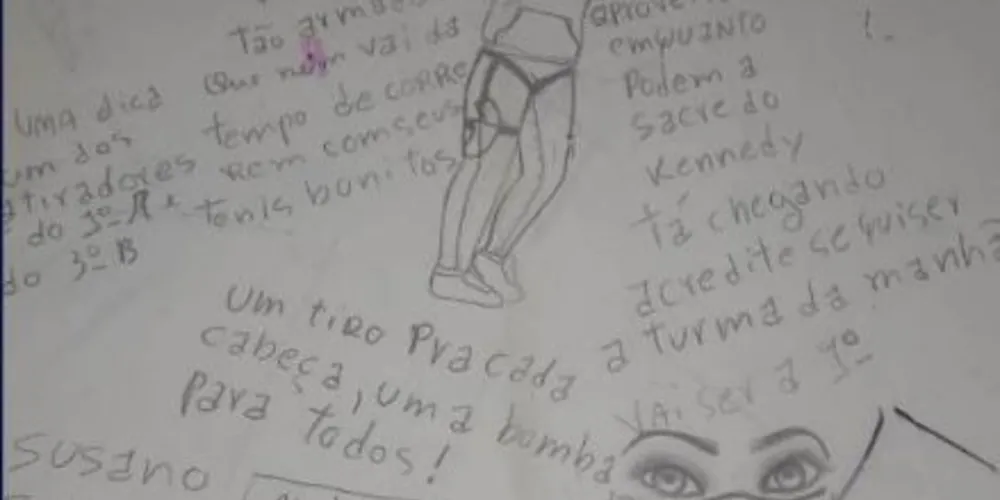 Tão armado
Que nem vai da
Uma dica
um dos
atiradores
do 3º A e
do 3º B
tempo de corre
Rem com seus
tenis bonitos
enquanto
Podem a
sacre do
Kennedy
Tá chegando
acredite se quiser
a turma da manhã
Vai ser a 1º
Um tiro Pra cada
cabeça, uma bomba
Para todos!
Susano